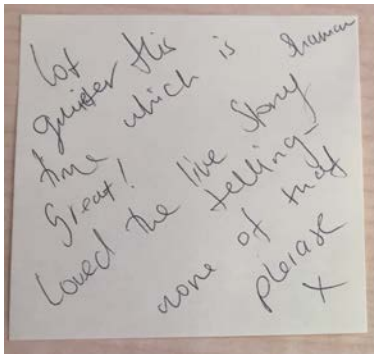 Lot
quieter this
time which is
Great!
Loved the live Story
telling-
more of that
please
X